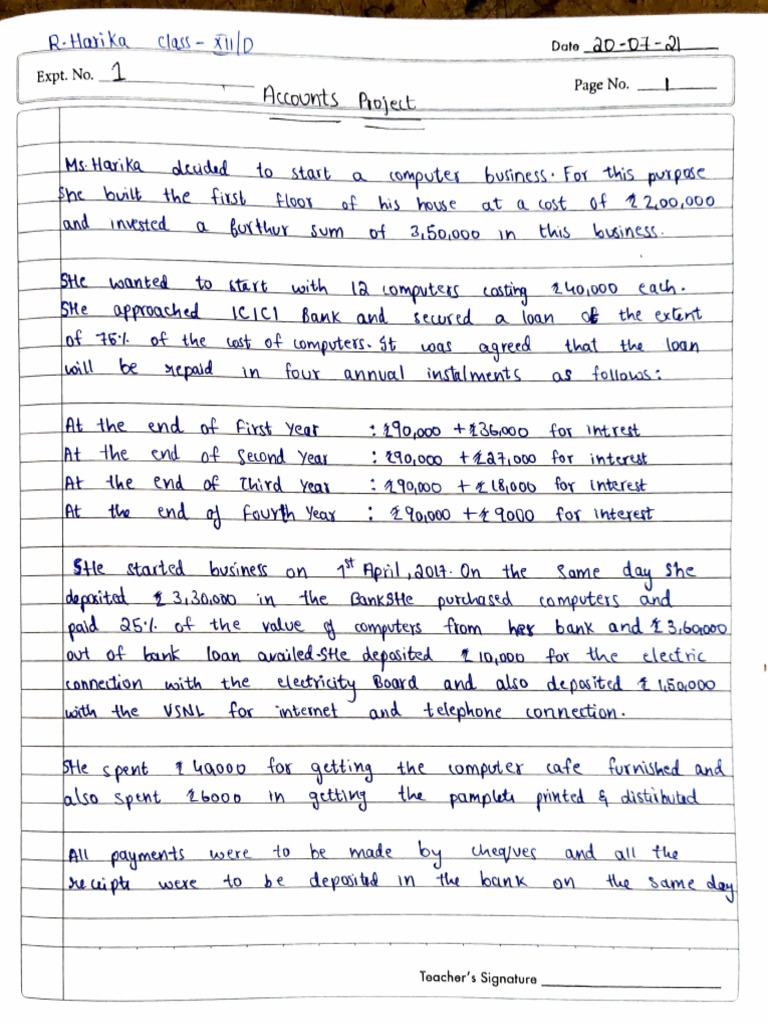 R-Harika class - XII/D Date 20-07-21
Expt. No. 1 Page No. 1
Accounts Project
Ms. Harika decided to start a computer business. For this purpose
She built the first floor of his house at a cost of ₹ 2,00,000
and invested a furthur sum of 3,50,000 in this business.
SHe wanted to start with 12 computers costing ₹40,000 each.
SHe approached ICICI Bank and secured a loan of the extent
of 75% of the cost of computers. It was agreed that the loan
will be repaid in four annual instalments as follows:
At the end of First Year : ₹90,000 + ₹36,000 for intrest
At the end of Second Year : ₹90,000 + ₹27,000 for interest
At the end of Third Year : ₹90,000 + ₹18,000 for interest
At the end of Fourth Year : ₹90,000 + ₹9000 for interest
SHe started business on 1st April, 2017. On the same day she
deposited ₹ 3,30,000 in the Bank SHe purchased computers and
paid 25% of the value of computers from her bank and ₹3,60,000
out of bank loan availed. SHe deposited ₹ 10,000 for the electric
connection with the electricity Board and also deposited ₹ 1,50,000
with the VSNL for internet and telephone connection.
SHe spent ₹ for getting the computer cafe furnished and
also spent ₹6000 in getting the pamplets printed & distributed
All payments were to be made by cheques and all the
receipts were to be deposited in the bank on the same day
Teacher's Signature